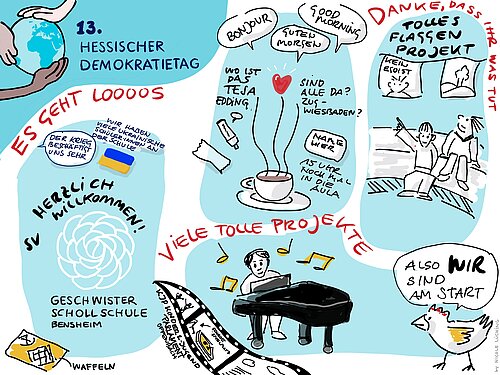 13.
HESSISCHER
DEMOKRATIETAG
ES GEHT LOOOOS
WIR HABEN
VIELE UKRAINISCHE
SCHÜLER*INNEN AN
DER SCHULE
DER KRIEG
BESCHÄFTIGT
UNS SEHR
HERZLICH
WILLKOMMEN!
SV
GESCHWISTER
SCHOLL SCHULE
BENSHEIM
WAFFELN
BONJOUR
GUTEN
MORGEN
GOOD
MORNING
WO IST
DAS
TESA
EDDING
SIND
ALLE DA?
ZUG-
WIESBADEN?
NAME
WER
15 UHR
NOCH MAL
IN DIE
AULA
DANKE, DASS IHR WAS TUT
TOLLES
FLAGGEN
PROJEKT
KEIN
EGOIST
VIELE TOLLE PROJEKTE
ALSO WIR
SIND
AM START